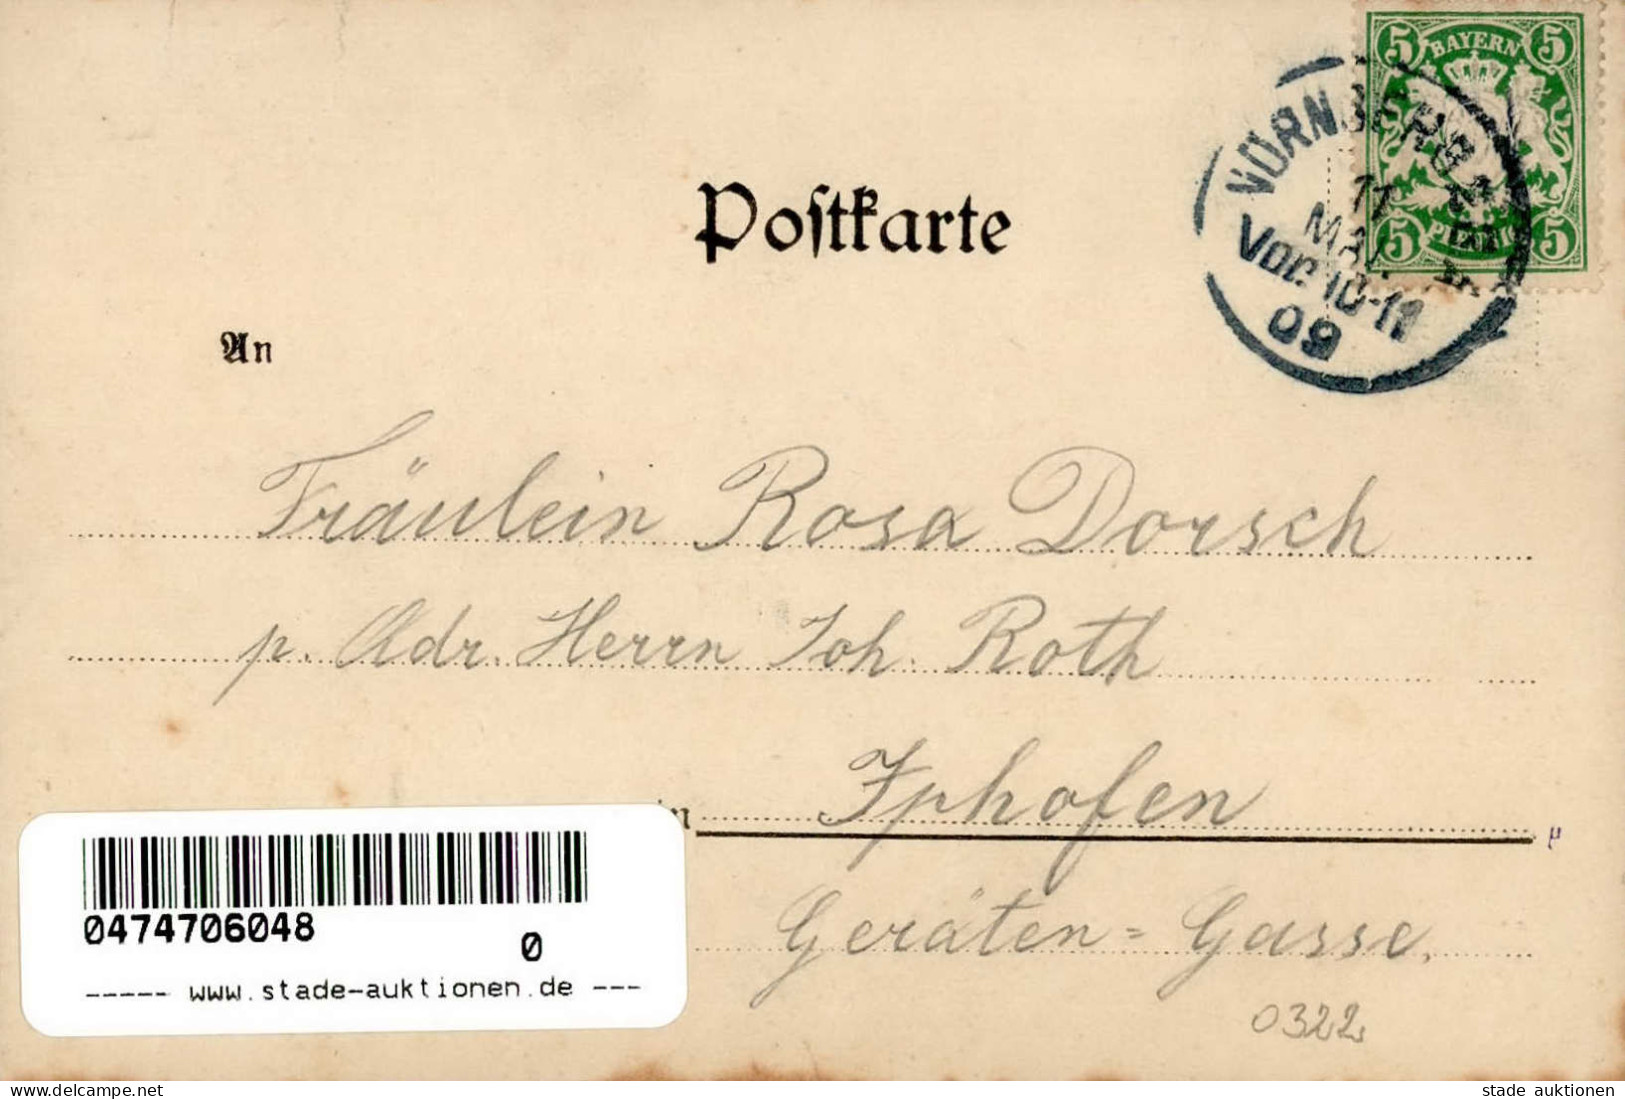 5 BAYERN 5
5 PFENNIG 5
NÜRNBERG 2
17
MAI.
Vor. 10-11
09
Postkarte
An
Fräulein Rosa Dorsch
p. Adr. Herrn Joh. Roth
in Iphofen
Geräten=Gasse.
0474706048
0
----- www.stade-auktionen.de ---
0322
https://www.delcampe.net/en_US/
stade_auktionen